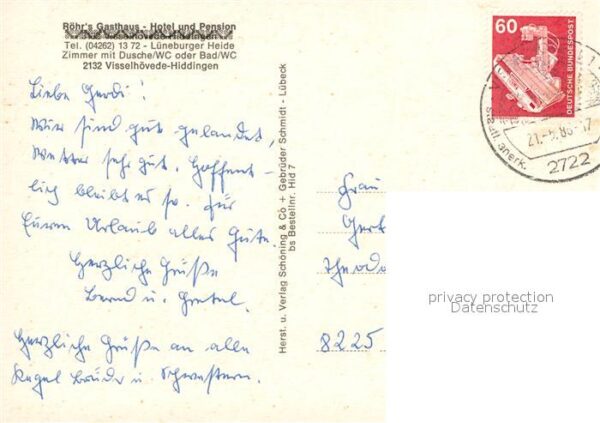 Röhr's Gasthaus - Hotel und Pension
Tel. (04262) 13 72 - Lüneburger Heide
Zimmer mit Dusche/WC oder Bad/WC
2132 Visselhövede-Hiddingen
Liebe Gerdi!
Wir sind gut gelandet,
Wetter sehr gut. Hoffent-
lich bleibt es so. Für
Euren Urlaub alles Gute.
Herzliche Grüße
Bernd u. Gretel.
Herzliche Grüße an alle
Kegel Brüder u. Schwestern.
Herst. u. Verlag Schöning & Co + Gebrüder Schmidt - Lübeck
bs Bestellnr. Hid 7
60
DEUTSCHE BUNDESPOST
staatl. anerk.
2722
Frau
Gert
Theodo
8225
privacy protection
Datenschutz